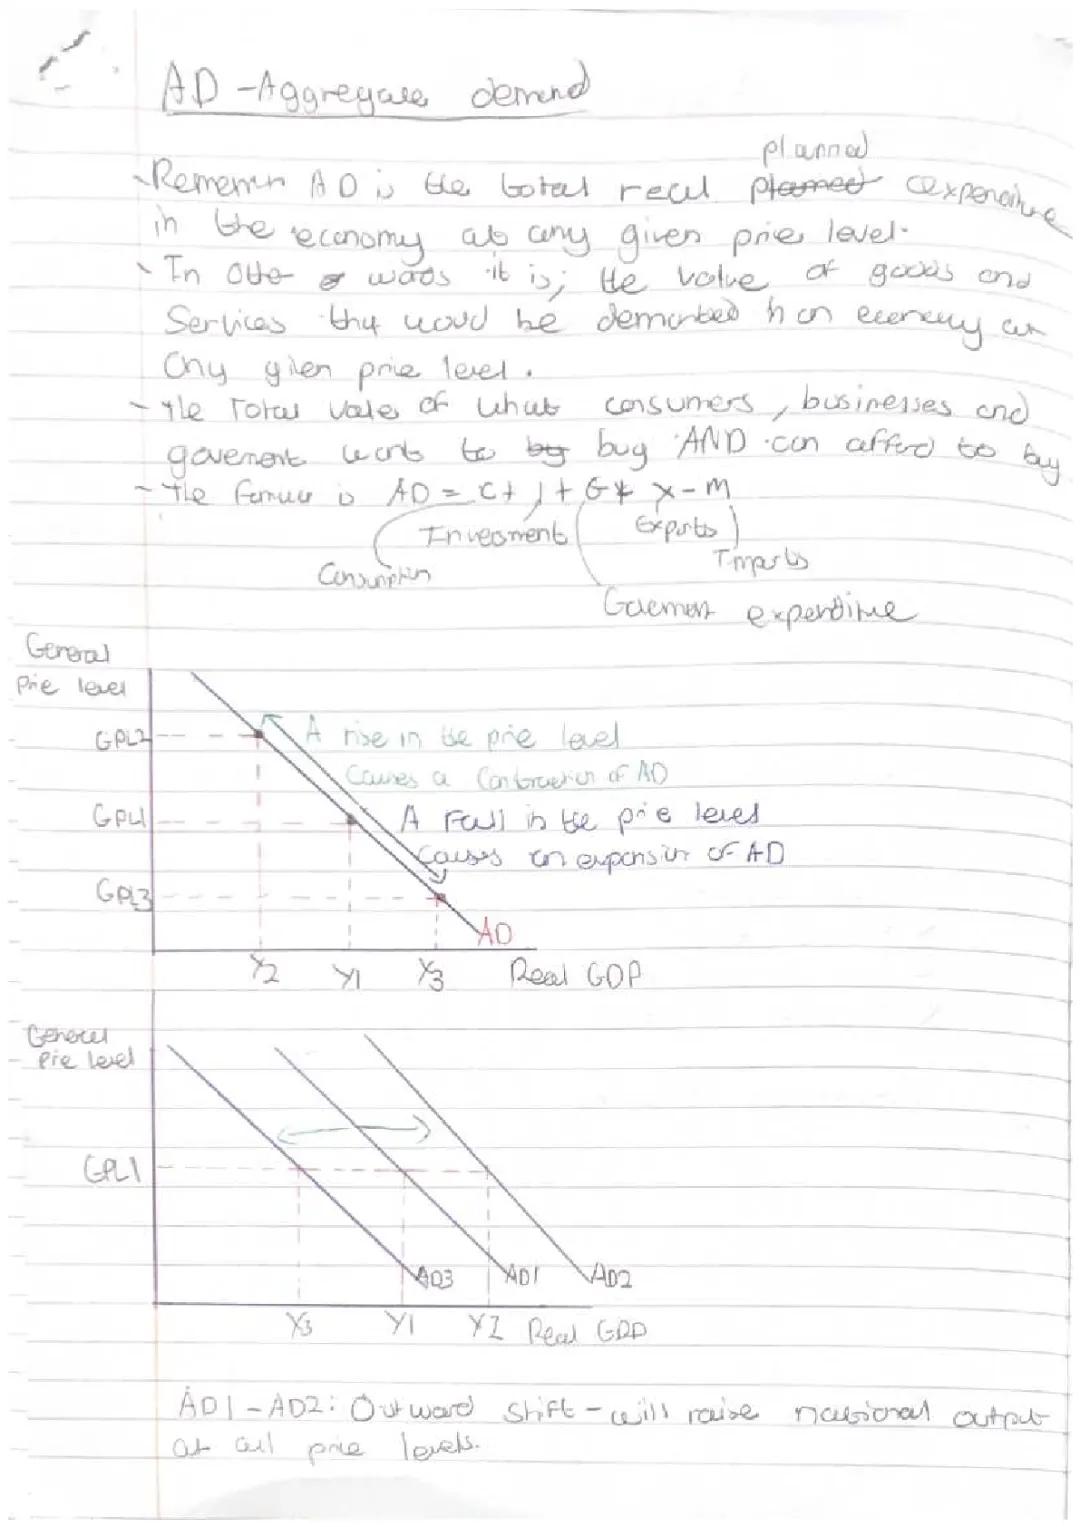 AD - Aggregate demand
planned
- Remember AD is the total real planned expenditure
in the economy at any given price level.
- In other words it is; the value of goods and
Services that would be demanded in an economy at
any given price level.
- The Total value of what consumers, businesses and
government wants to by buy AND can afford to buy
- The formula is AD = C + I + G + X - M
Investment Exports
Consumption Imports
Government expenditure
General
price level
GPL2 A rise in the price level
causes a contraction of AD
GPL1 A Fall in the price level
causes an expansion of AD
GPL3
AD
Y2 Y1 Y3 Real GDP
General
price level
GPL1
AD3 AD1 AD2
Y3 Y1 Y2 Real GDP
AD1 - AD2: Outward shift - will raise national output
at all price levels.